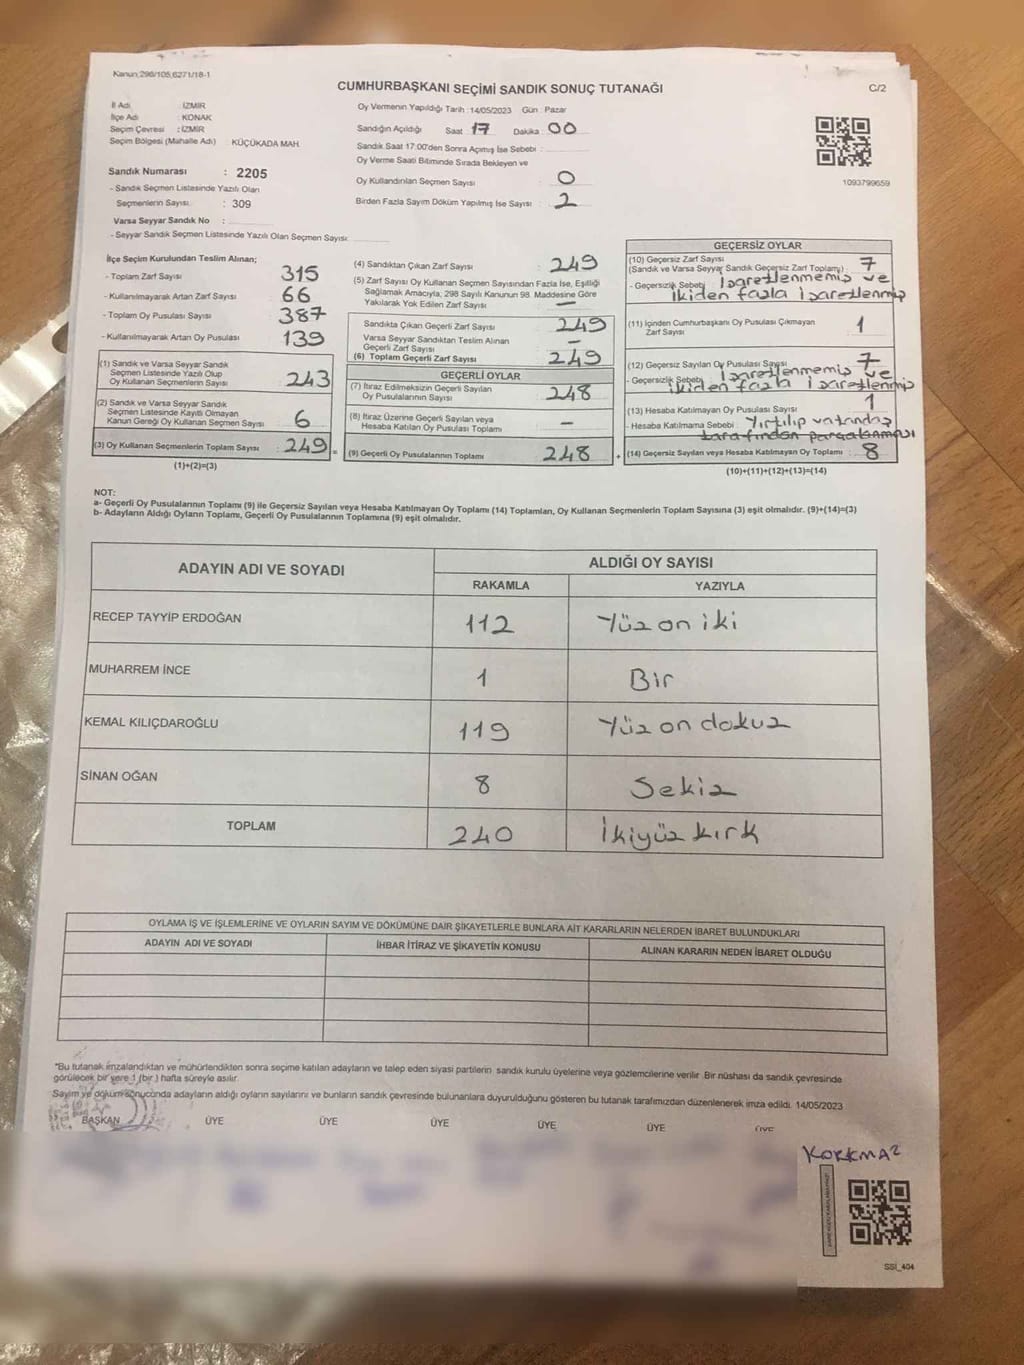 Kanun;298/105,6271/18-1
CUMHURBAŞKANI SEÇİMİ SANDIK SONUÇ TUTANAĞI
C/2
İl Adı : İZMİR
İlçe Adı : KONAK
Seçim Çevresi : İZMİR
Seçim Bölgesi (Mahalle Adı) : KÜÇÜKADA MAH.
Sandık Numarası : 2205
- Sandık Seçmen Listesinde Yazılı Olan
Seçmenlerin Sayısı : 309
Varsa Seyyar Sandık No :
- Seyyar Sandık Seçmen Listesinde Yazılı Olan Seçmen Sayısı:
Oy Vermenin Yapıldığı Tarih : 14/05/2023 Gün : Pazar
Sandığın Açıldığı Saat : 17 Dakika : 00
Sandık Saat 17:00'den Sonra Açımış İse Sebebi :
Oy Verme Saati Bitiminde Sırada Bekleyen ve
Oy Kullandırılan Seçmen Sayısı : 0
Birden Fazla Sayım Döküm Yapılmış İse Sayısı : 2
1093799659
İlçe Seçim Kurulundan Teslim Alınan;
- Toplam Zarf Sayısı : 315
- Kullanılmayarak Artan Zarf Sayısı : 66
- Toplam Oy Pusulası Sayısı : 387
- Kullanılmayarak Artan Oy Pusulası : 139
(1) Sandık ve Varsa Seyyar Sandık
Seçmen Listesinde Yazılı Olup
Oy Kullanan Seçmenlerin Sayısı : 243
(2) Sandık ve Varsa Seyyar Sandık
Seçmen Listesinde Kayıtlı Olmayan
Kanun Gereği Oy Kullanan Seçmen Sayısı : 6
(3) Oy Kullanan Seçmenlerin Toplam Sayısı : 249 =
(1)+(2)=(3)
(4) Sandıktan Çıkan Zarf Sayısı : 249
(5) Zarf Sayısı Oy Kullanan Seçmen Sayısından Fazla İse, Eşitliği
Sağlamak Amacıyla, 298 Sayılı Kanunun 98. Maddesine Göre
Yakılarak Yok Edilen Zarf Sayısı : —
Sandıkta Çıkan Geçerli Zarf Sayısı : 249
Varsa Seyyar Sandıktan Teslim Alınan
Geçerli Zarf Sayısı : —
(6) Toplam Geçerli Zarf Sayısı : 249
GEÇERLİ OYLAR
(7) İtiraz Edilmeksizin Geçerli Sayılan
Oy Pusulalarının Sayısı : 248
(8) İtiraz Üzerine Geçerli Sayılan veya
Hesaba Katılan Oy Pusulası Toplamı : —
(9) Geçerli Oy Pusulalarının Toplamı : 248 +
GEÇERSİZ OYLAR
(10) Geçersiz Zarf Sayısı
(Sandık ve Varsa Seyyar Sandık Geçersiz Zarf Toplamı) : 7
- Geçersizlik Sebebi : İşaretlenmemiş ve
ikiden fazla işaretlenmiş
(11) İçinden Cumhurbaşkanı Oy Pusulası Çıkmayan
Zarf Sayısı : 1
(12) Geçersiz Sayılan Oy Pusulası Sayısı : 7
- Geçersizlik Sebebi : İşaretlenmemiş ve
ikiden fazla işaretlenmiş
(13) Hesaba Katılmayan Oy Pusulası Sayısı : 1
- Hesaba Katılmama Sebebi : Yırtılıp vatandaş
tarafından parçalanması
(14) Geçersiz Sayılan veya Hesaba Katılmayan Oy Toplamı : 8
(10)+(11)+(12)+(13)=(14)
NOT:
a- Geçerli Oy Pusulalarının Toplamı (9) ile Geçersiz Sayılan veya Hesaba Katılmayan Oy Toplamı (14) Toplamları, Oy Kullanan Seçmenlerin Toplam Sayısına (3) eşit olmalıdır. (9)+(14)=(3)
b- Adayların Aldığı Oyların Toplamı, Geçerli Oy Pusulalarının Toplamına (9) eşit olmalıdır.
ADAYIN ADI VE SOYADI
ALDIĞI OY SAYISI
RAKAMLA YAZIYLA
RECEP TAYYİP ERDOĞAN 112 Yüz on iki
MUHARREM İNCE 1 Bir
KEMAL KILIÇDAROĞLU 119 Yüz on dokuz
SİNAN OĞAN 8 Sekiz
TOPLAM 240 İkiyüz kırk
OYLAMA İŞ VE İŞLEMLERİNE VE OYLARIN SAYIM VE DÖKÜMÜNE DAİR ŞİKAYETLERLE BUNLARA AİT KARARLARIN NELERDEN İBARET BULUNDUKLARI
ADAYIN ADI VE SOYADI İHBAR İTİRAZ VE ŞİKAYETİN KONUSU ALINAN KARARIN NEDEN İBARET OLDUĞU
*Bu tutanak imzalandıktan ve mühürlendikten sonra seçime katılan adayların ve talep eden siyasi partilerin sandık kurulu üyelerine veya gözlemcilerine verilir. Bir nüshası da sandık çevresinde
görülecek bir yere 1 (bir) hafta süreyle asılır.
Sayım ve döküm sonucunda adayların aldığı oyların sayılarını ve bunların sandık çevresinde bulunanlara duyurulduğunu gösteren bu tutanak tarafımızdan düzenlenerek imza edildi. 14/05/2023
BAŞKAN ÜYE ÜYE ÜYE ÜYE ÜYE ÜYE
KORKMAZ
SSİ_404